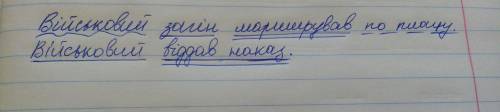 Військовий загін марширував по плацу.
Військовий віддав наказ.